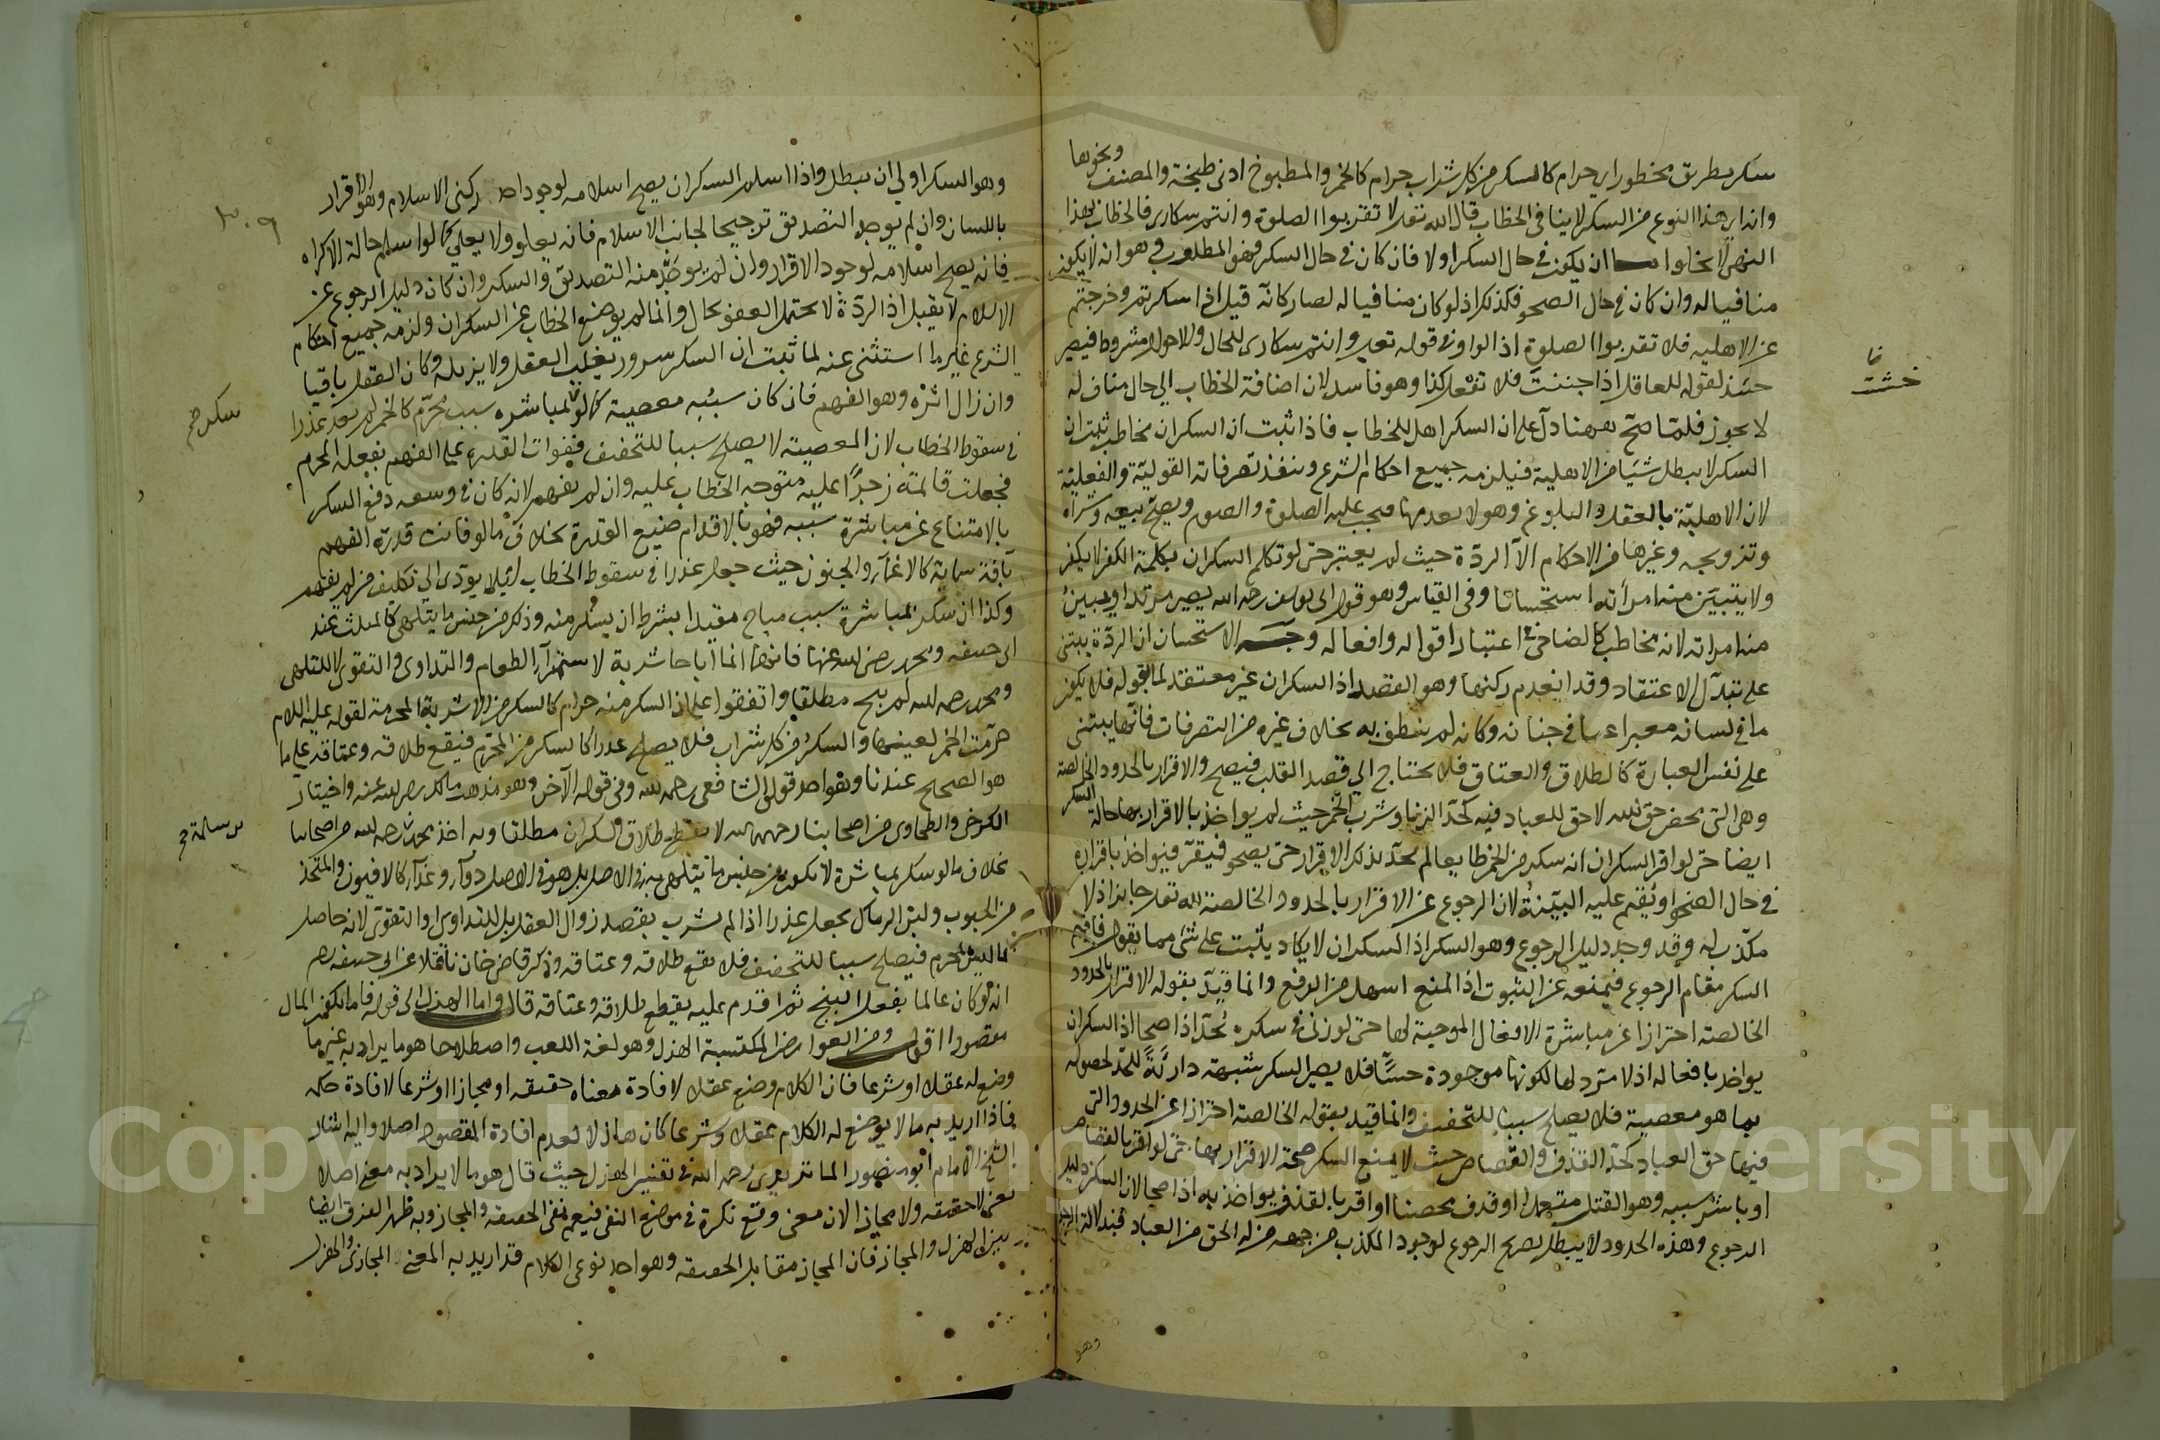 سكر بطريق محظور اي حرام كالسكر من كل شراب حرام كالخمر والمطبوخ ادنى طبخة والمصنف
ونحوهما
وانه اي هذا النوع من السكر لا ينافي الخطاب قال الله تعالى لا تقربوا الصلوة وانتم سكارى فالخطاب بهذا
النهي لا يخلوا اما ان يكون في حال السكر او لا فان كان في حال السكر فهو المطلوب وهو انه لا يكون
منافيا له وان كان في حال الصحو فكذلك اذ لو كان منافيا له لصار كانه قيل اذا سكرتم وخرجتم
عن الاهلية فلا تقربوا الصلوة اذ الواو في قوله تعالى وانتم سكارى للحال والاحوال مشروط فيصير
حينئذ كقوله للعاقل اذا جننت فلا تفعل كذا وهو فاسد لان اضافة الخطاب الى حال مناف له
لا يجوز فلما صح ههنا دل على ان السكر اهل للخطاب فاذا ثبت ان السكران مخاطب ثبت ان
السكر لا يبطل شيئا من الاهلية فيلزمه جميع احكام الشرع وينفذ تصرفاته القولية والفعلية
لان الاهلية بالعقل والبلوغ وهو لا يعدمها فيجب عليه الصلوة والصوم ويصح بيعه وشراه
وتزويجه وغيرها من الاحكام الا الردة حيث لم يعتبر حتى لو تكلم السكران بكلمة الكفر لا يكفر
ولا يتبين منه امرأته استحسانا وفي القياس وهو قول ابي يوسف رحمه الله يصير مرتدا ويبين
منه امراته لانه مخاطب كالصاحي في اعتبار اقواله وافعاله وجه الاستحسان ان الردة يبتنى
على تبدل الاعتقاد وقد انعدم ركنها وهو القصد اذ السكران غير معتقد لما يقوله فلا يكون
ما في لسانه معبرا عما في جنانه وكانه لم ينطق به بخلاف غيره من التصرفات فانها يبتنى
على نفس العبارة كالطلاق والعتاق فلا يحتاج الى قصد القلب فيصح والاقرار بالحدود الخالصة
وهي التي محض حق لله لا حق للعباد فيه كحد الزنا وشرب الخمر حيث لم يواخذ بالاقرار بها حالة
السكر
ايضا حتى لو اقر السكران انه سكر من الخمر طايعا لم يحد بذلك الاقرار حتى يصحو فيقر فيواخذ باقراره
في حال الصحو او يقم عليه البينة لان الرجوع عن الاقرار بالحدود الخالصة لله تعالى جايز اذ لا
مكذب له وقد وجد دليل الرجوع وهو السكر اذ السكران لا يكاد يثبت على شيء مما يقول فاقيم
السكر مقام الرجوع فيمنعه عن الثبوت اذ المنع اسهل من الرفع وانما قيد بقوله الاقرار بالحدود
الخالصة احترازا عن مباشرة الافعال الموجبة لها حتى لو زنى في سكره يحد اذا صحا اذ السكران
يواخذ بافعاله اذ لا مرد لها لكونها موجودة حسا فلا يصير السكر شبهة دارئة للحد لحصوله
بما هو معصية فلا يصلح سببا للتخفيف وانما قيد بقوله الخالصة احترازا عن الحدود التي
فيها حق العباد كحد القذف والقصاص حيث لا يمنع السكر صحة الاقرار بهما حتى لو اقر بالقصاص
او باشر سببه وهو القتل متعمدا او قذف محصنا او اقر بالقذف يواخذ به اذا صحا لان السكر دليل
الرجوع وهذه الحدود لا يبطل بصريح الرجوع لوجود المكذب من جهة من له الحق من العباد فبدلالة الرجوع
وهو
وهو السكر اولى ان يبطل واذا اسلم السكران يصح اسلامه لوجود احد ركني الاسلام وهو الاقرار
باللسان وان لم يوجد التصديق ترجيحا لجانب الاسلام فانه يعلو ولا يعلى كما لو اسلم حالة الاكراه
فانه يصح اسلامه لوجود الاقرار وان لم يوجد منه التصديق والسكر وان كان دليل الرجوع عن
الاسلام لا يقبل اذ الردة لا تحتمل العفو بحال وانما لم يوضع الخطاب عن السكران ولزمه جميع احكام
الشرع غير ما استثنى عنه لما ثبت ان السكر سرور يغلب العقل ولا يزيله وكان العقل باقيا
وان زال اثره وهو الفهم فان كان سببه معصية كما لو باشره سبب محرم كالخمر لم يعد عذرا
في سقوط الخطاب لان المعصية لا يصلح سببا للتخفيف ففوات القدرة على الفهم بفعله المحرم
فجعلت قائمة زجرا عليه متوجه الخطاب عليه وان لم يفهم لانه كان في وسعه دفع السكر
بالامتناع عن مباشرة سببه فهو بالاقدام ضيع القدرة بخلاف ما لو فاتت قدرة الفهم
بآفة سماوية كالاغماء والجنون حيث جعل عذرا في سقوط الخطاب لئلا يودي الى تكليف من لم يفهم
وكذا ان سكر بمباشرة سبب مباح مقيدا بشرط ان يسكر منه وذلك من جنس ما يتلهى كالمثلث عند
ابي حنيفه ومحمد رضي الله عنهما فانهما انما اباحا شربه لاستمراء الطعام والتداوي والتقوى لا للتلهي
ومحمد رحمه الله لم يبح مطلقا واتفقوا على ان السكر منه حرام كالسكر من الاشربة المحرمة لقوله عليه السلام
حرمت الخمر لعينها والسكر من كل شراب فلا يصلح عذرا كالسكر من المحرم فيقع طلاقه وعتاقه على ما
هو الصحيح عندنا وهو احد قولي الشافعي رحمه الله وفي قوله الآخر وهو مذهب مالك رضي الله عنه واختيار
الكرخي والطحاوي من اصحابنا رحمهم الله لا يقع طلاق السكران مطلقا وبه اخذ محمد بن رحمه الله من اصحابنا
بخلاف ما لو سكر بمباشرة لا تكون من جنس ما يتلهى به في الاصل بل هو في الاصل دواء وغذاء كالافيون والمتخذ
من الحبوب ولبن الرماك يجعل عذرا اذا لم يشرب بقصد زوال العقل بل للتداوي او التقوى لانه حاصل
بما ليس بمحرم فيصلح سببا للتخفيف فلا يقع طلاقه وعتاقه وذكر قاضي خان ناقلا عن ابي حنيفه رحمه
انه لو كان عالما بفعل البنج ثم اقدم عليه يقع طلاقه وعتاقه قال واما الهزل الى قوله فاما لكفر المال
مقصودا اقول ومن العوارض المكتسبة الهزل وهو لغة اللعب واصطلاحا هو ما يراد به غير ما
وضع له عقلا او شرعا فان الكلام وضع عقلا لافادة معناه حقيقه او مجازا او شرعا لافادة حكمه
فاذا اريد به ما لا يوضع له الكلام عقلا وشرعا كان هازلا لعدم افادة المقصود اصلا واليه اشار
الشيخ الامام ابو منصور الماتريدي رحمه الله في تفسير الهزل حيث قال هو ما لا يراد به معنى اصلا
يعني لا حقيقه ولا مجازا لان معنى وقع نكرة في موضع النفي فيعم نفي الحقيقه والمجاز وبه ظهر الفرق ايضا
بين الهزل والمجاز فان المجاز مقابل الحقيقه وهو احد نوعي الكلام قد اريد به المعنى المجازي والهزل
٣٠٩